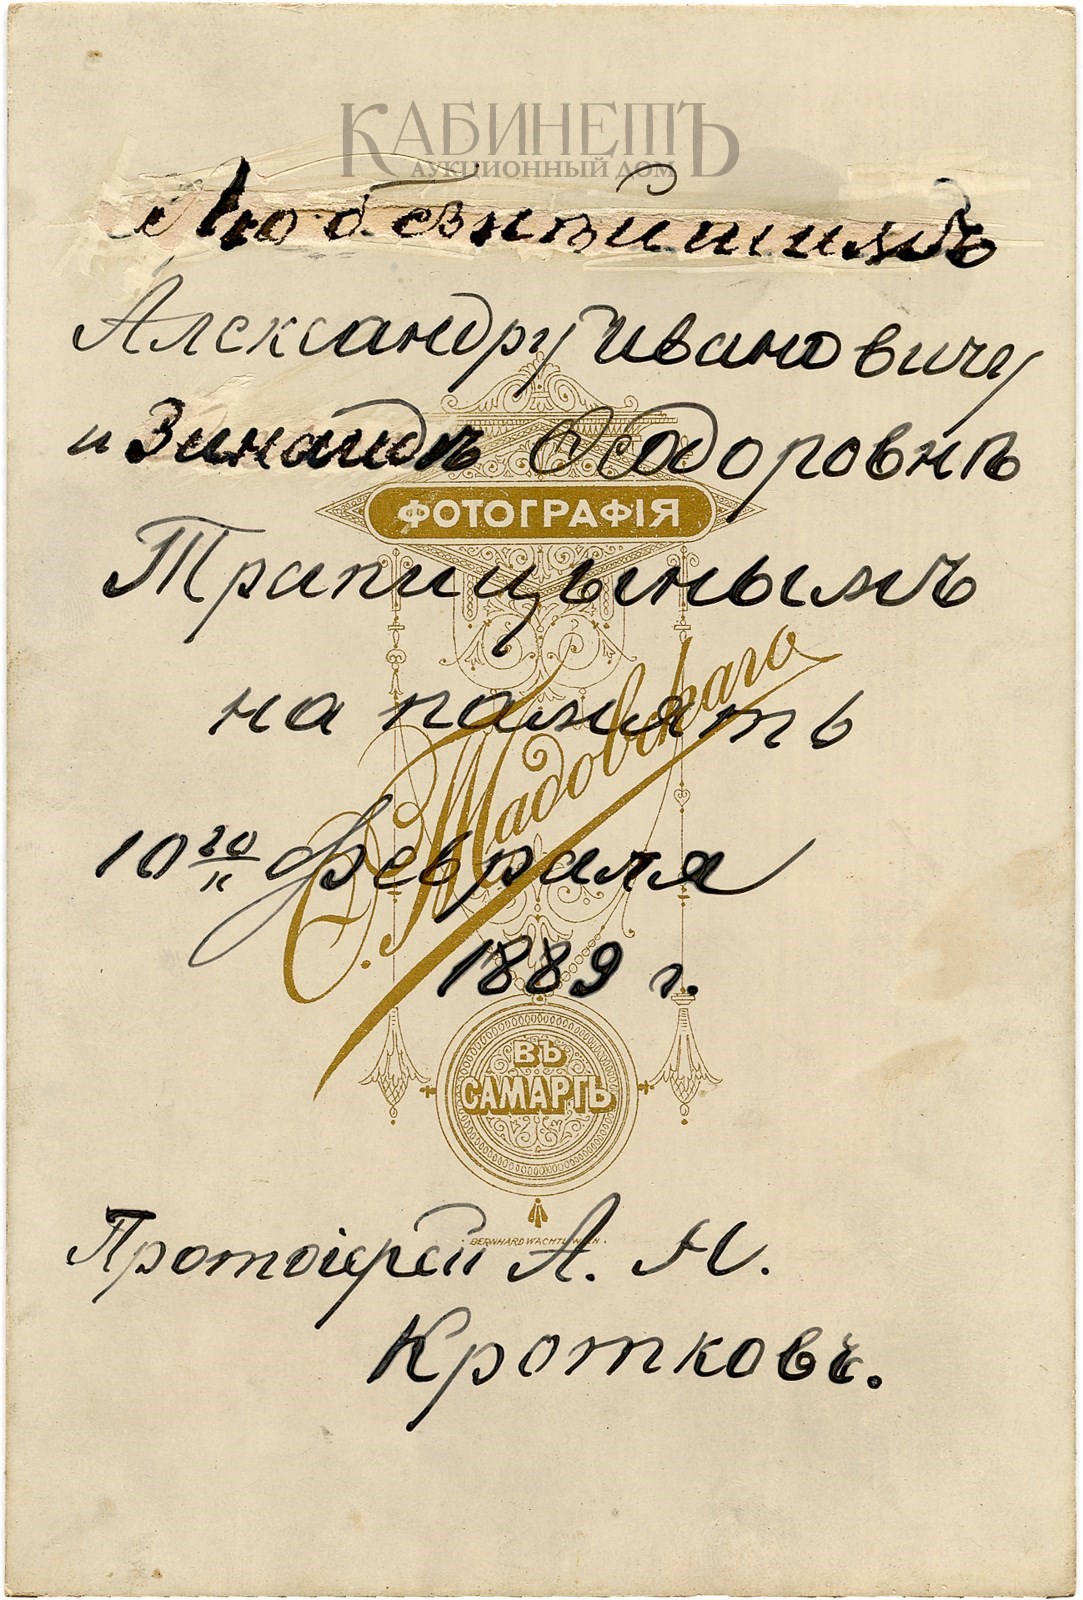 КАБИНЕТЪ
АУКЦИОННЫЙ ДОМ
Любезнѣйшимъ
Александру Ивановичу
и Зинаидѣ Ѳеодоровнѣ
ФОТОГРАФІЯ
Трапицынымъ
на память
10 го/11 февраля
1889 г.
ВЪ
САМАРѢ
Протоіерей А. Н.
BERNHARD WACHTL, WIEN.
Кротковъ.